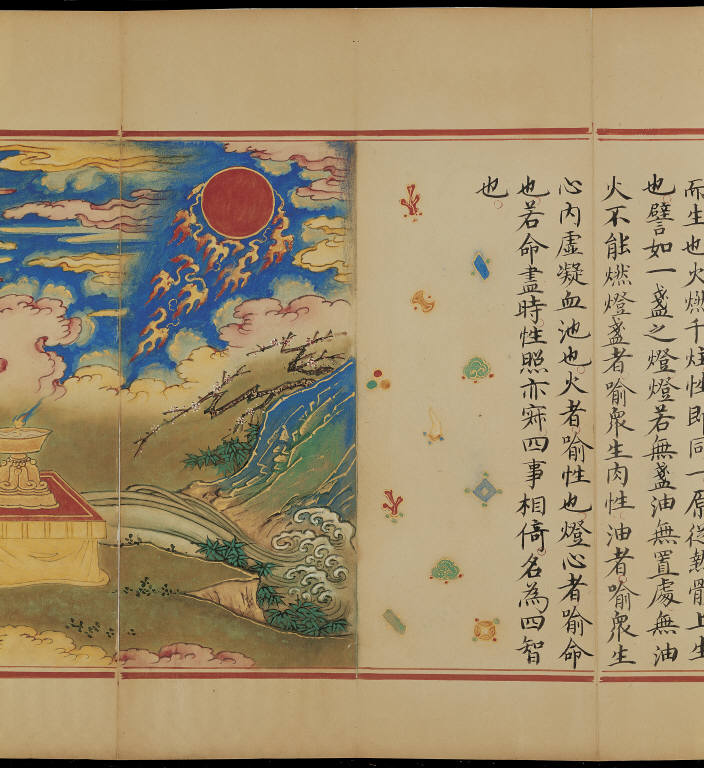 而生也火燃千炷性即同一原從熱骨上生
也譬如一盞之燈燈若無盞油無置處無油
火不能燃燈盞者喻衆生肉性油者喻衆生
心內虛凝血池也火者喻性也燈心者喻命
也若命盡時性照亦寂四事相倚名為四智
也